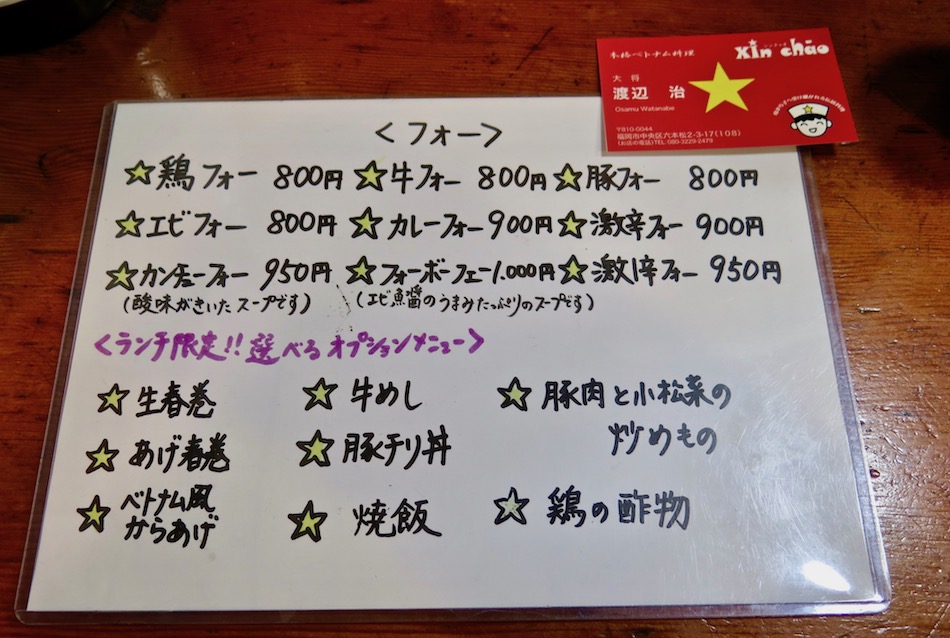 本格ベトナム料理
xin chāo
シンチャオ
大将
渡辺 治
Osamu Watanabe
〒810-0044
福岡市中央区六本松2-3-17(108)
(お店の電話)TEL.080-3229-2479
<フォー>
☆鶏フォー 800円 ☆牛フォー 800円 ☆豚フォー 800円
☆エビフォー 800円 ☆カレーフォー 900円 ☆激辛フォー 900円
☆カンチューフォー 950円 ☆フォーボーフェー1.000円 ☆激辛フォー 950円
(酸味がきいたスープです) (エビ魚醤のうまみたっぷりのスープです)
<ランチ限定!!選べるオプションメニュー>
☆生春巻 ☆牛めし ☆豚肉と小松菜の
炒めもの
☆あげ春巻 ☆豚チリ丼
☆ベトナム風
からあげ ☆焼飯 ☆鶏の酢物